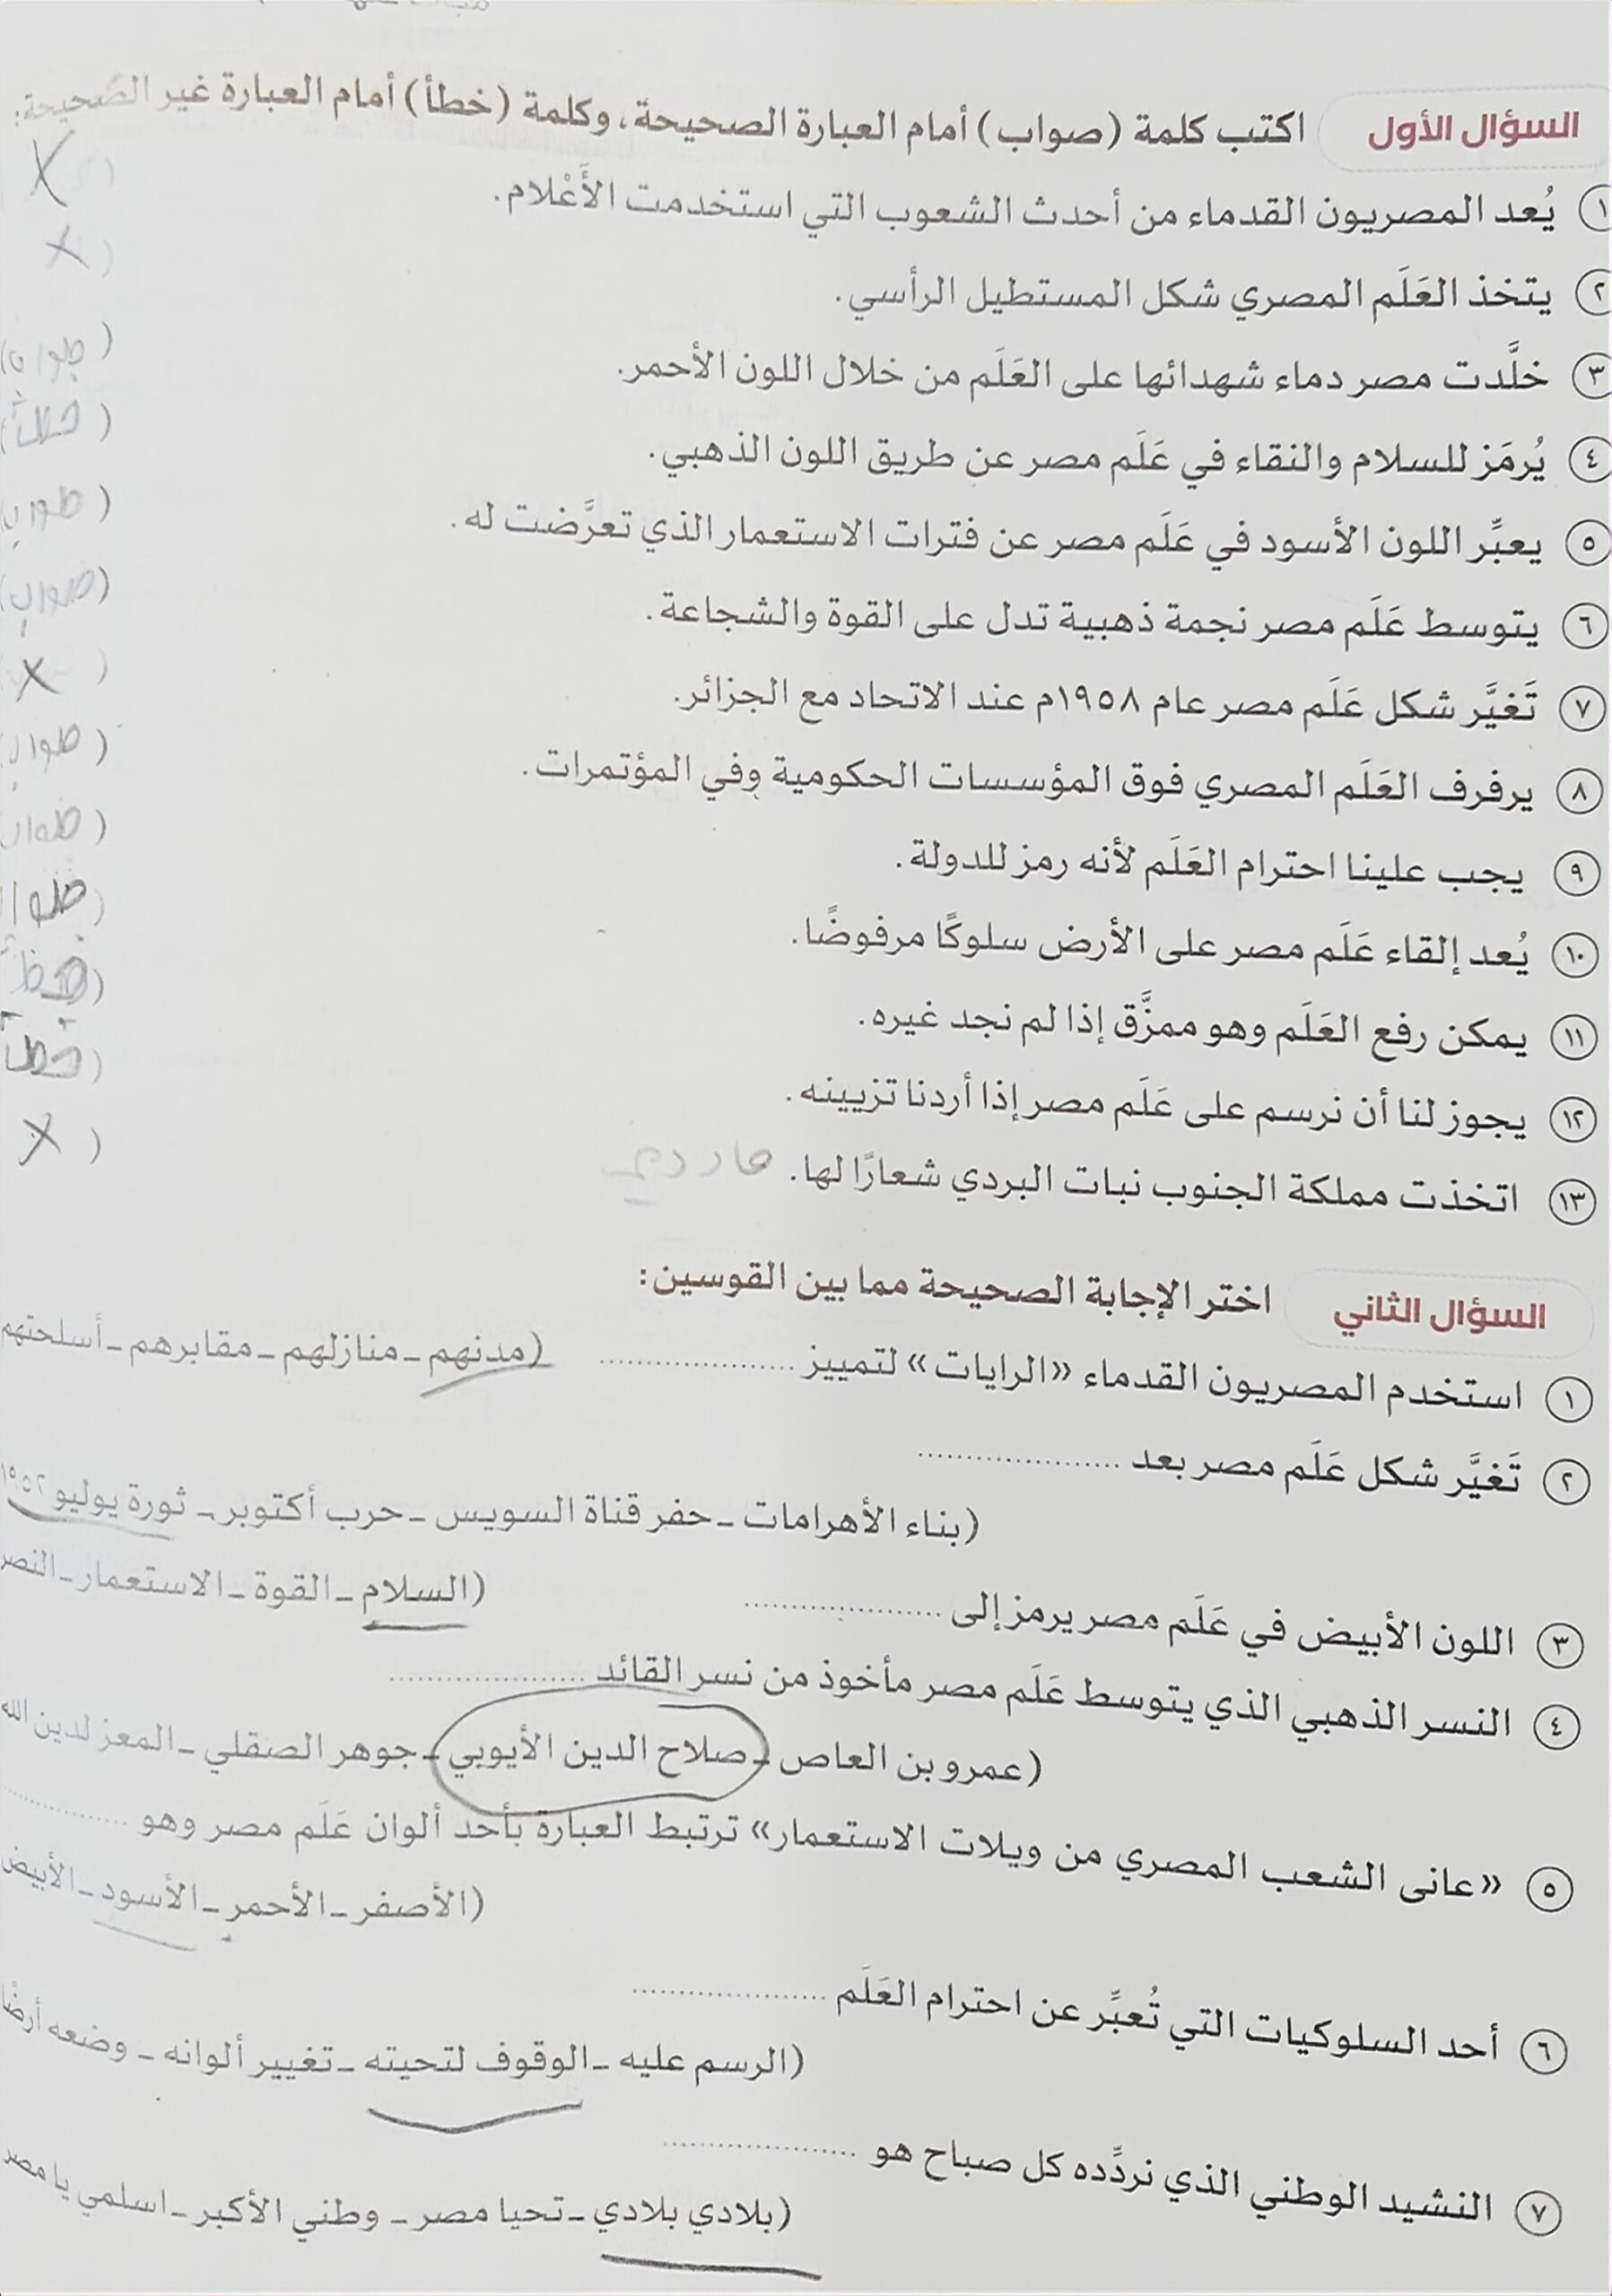 السؤال الأول اكتب كلمة (صواب) أمام العبارة الصحيحة، وكلمة (خطأ) أمام العبارة غير الصحيحة:
١ يُعد المصريون القدماء من أحدث الشعوب التي استخدمت الأَعْلام. ( X
٢ يتخذ العَلَم المصري شكل المستطيل الرأسي. ( X
٣ خلَّدت مصر دماء شهدائها على العَلَم من خلال اللون الأحمر. (صواب)
٤ يُرمَز للسلام والنقاء في عَلَم مصر عن طريق اللون الذهبي. (خطأ)
٥ يعبِّر اللون الأسود في عَلَم مصر عن فترات الاستعمار الذي تعرَّضت له. (صواب
٦ يتوسط عَلَم مصر نجمة ذهبية تدل على القوة والشجاعة. (صواب)
٧ تَغيَّر شكل عَلَم مصر عام ١٩٥٨م عند الاتحاد مع الجزائر. ( X
٨ يرفرف العَلَم المصري فوق المؤسسات الحكومية وفي المؤتمرات. (صواب
٩ يجب علينا احترام العَلَم لأنه رمز للدولة. (صوا
١٠ يُعد إلقاء عَلَم مصر على الأرض سلوكًا مرفوضًا. (صوا
١١ يمكن رفع العَلَم وهو ممزَّق إذا لم نجد غيره. (خطأ
١٢ يجوز لنا أن نرسم على عَلَم مصر إذا أردنا تزيينه. (خطأ
١٣ اتخذت مملكة الجنوب نبات البردي شعارًا لها. ( X
السؤال الثاني اختر الإجابة الصحيحة مما بين القوسين:
١ استخدم المصريون القدماء «الرايات» لتمييز .................... (مدنهم - منازلهم - مقابرهم - أسلحتهم
٢ تَغيَّر شكل عَلَم مصر بعد ....................
(بناء الأهرامات - حفر قناة السويس - حرب أكتوبر - ثورة يوليو ١٩٥٢
٣ اللون الأبيض في عَلَم مصر يرمز إلى .................... (السلام - القوة - الاستعمار - النصر
٤ النسر الذهبي الذي يتوسط عَلَم مصر مأخوذ من نسر القائد ....................
(عمرو بن العاص - صلاح الدين الأيوبي - جوهر الصقلي - المعز لدين الله
٥ «عانى الشعب المصري من ويلات الاستعمار» ترتبط العبارة بأحد ألوان عَلَم مصر وهو ....................
(الأصفر - الأحمر - الأسود - الأبيض
٦ أحد السلوكيات التي تُعبِّر عن احترام العَلَم ....................
(الرسم عليه - الوقوف لتحيته - تغيير ألوانه - وضعه أرضًا
٧ النشيد الوطني الذي نردِّده كل صباح هو ....................
(بلادي بلادي - تحيا مصر - وطني الأكبر - اسلمي يا مصر